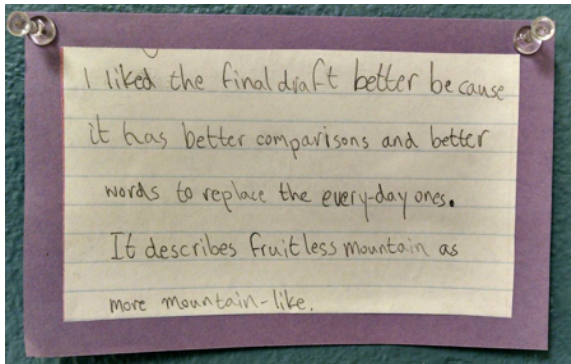 I liked the final draft better because
it has better comparisons and better
words to replace the every-day ones.
It describes fruitless mountain as
more mountain-like.